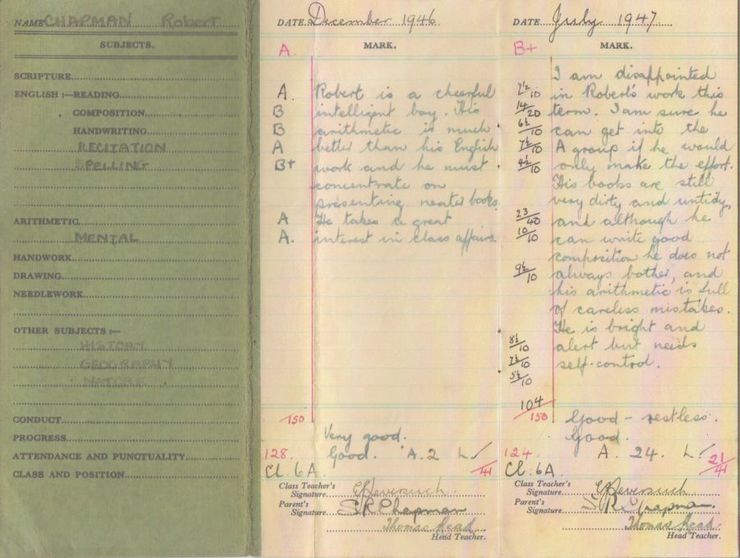 NAME CHAPMAN Robert
SUBJECTS.
SCRIPTURE
ENGLISH :—READING
COMPOSITION
HANDWRITING
RECITATION
SPELLING
ARITHMETIC
MENTAL
HANDWORK
DRAWING
NEEDLEWORK
OTHER SUBJECTS :—
HISTORY
GEOGRAPHY
NATURE
CONDUCT
PROGRESS
ATTENDANCE AND PUNCTUALITY
CLASS AND POSITION
DATE December 1946
A. MARK.
A. Robert is a cheerful
B intelligent boy. His
B arithmetic is much
A better than his English
B+ work and he must
concentrate on
presenting neater books.
A He takes a great
A. interest in class affairs.
150
Very good.
128. Good. A.2 L
Cl. 6A /41
Class Teacher's
Signature
Parent's
Signature S R Chapman
Thomas Head
Head Teacher.
DATE July 1947
B+ MARK.
I am disappointed
7½/10 in Robert's work this
14/20 term. I am sure he
6½/10 can get into the
7½/10 A group if he would
only make the effort.
His books are still
very dirty and untidy,
23/40 and although he
10/10 can write good
composition he does not
9½/10 always bother, and
his arithmetic is full
of careless mistakes.
He is bright and
8½/10 alert but needs
self-control.
104/150 Good - restless.
Good.
124. A. 24. L
Cl. 6A. 21/41
Class Teacher's
Signature
Parent's
Signature S R Chapman.
Thomas Head.
Head Teacher.